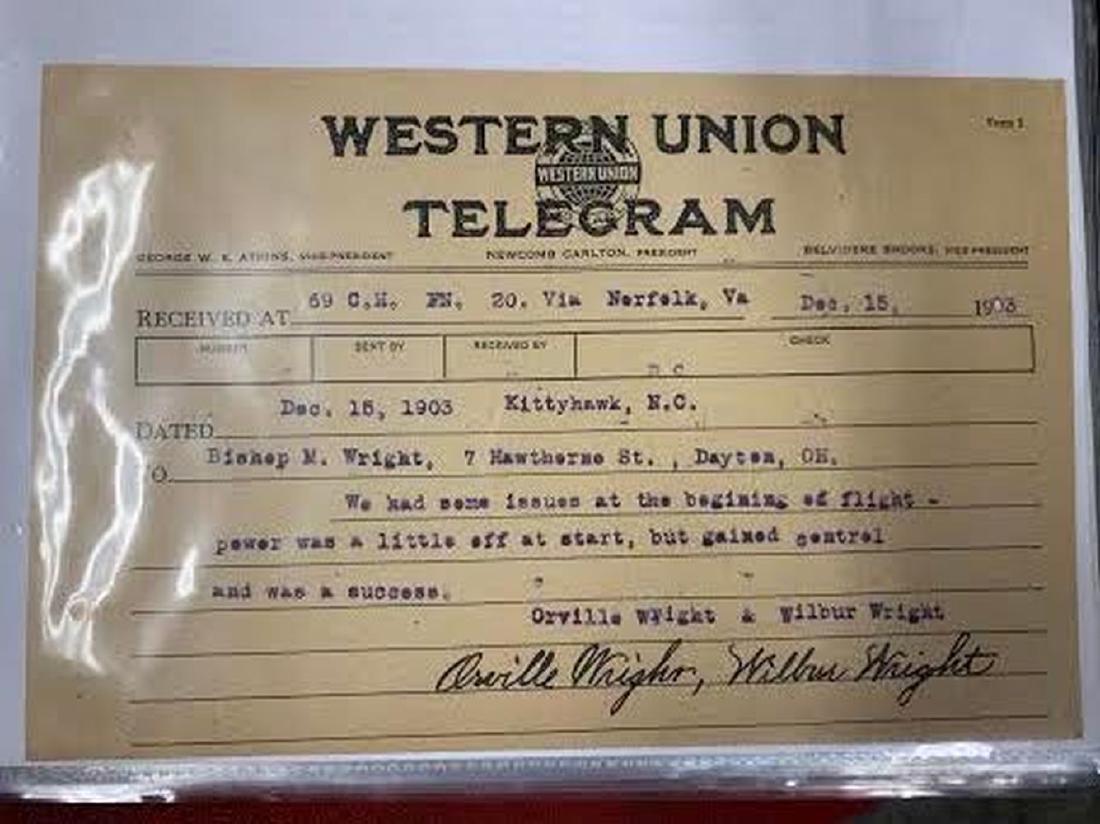 WESTERN UNION
WESTERN UNION
TELEGRAM
Form 1
GEORGE W. E. ATKINS, VICE-PRESIDENT NEWCOMB CARLTON, PRESIDENT BELVIDERE BROOKS, VICE-PRESIDENT
RECEIVED AT 69 C.H. FN. 20. Via Norfolk, Va Dec. 15, 1903
NUMBER SENT BY RECEIVED BY CHECK
DATED Dec. 15, 1903 Kittyhawk, N.C.
TO Bishop M. Wright, 7 Hawthorne St. , Dayton, OH.
We had some issues at the begining of flight -
power was a little off at start, but gained control
and was a success.
Orville Wright & Wilbur Wright
Orville Wright, Wilbur Wright